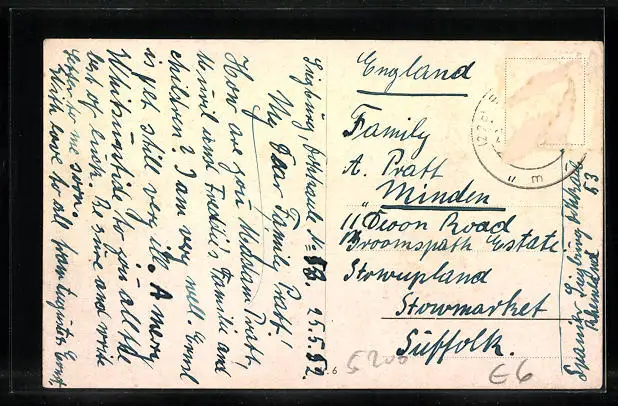 Siegburg, 25.5.52.
My Dear Family Pratt!
How are you Madam Pratt,
and Freddie's Familie and
children? I am very well. Ernst
is yet still very ill. A merry
Whitsuntide to you all the
best of luck. Be sure and write
letter to me soon.
With love to all from Ernst
England
Family
A. Pratt
"Minden
11 Devon Road
Broomspath Estate
Stowupland
Stowmarket
Suffolk.
Siegburg
Rheinland 53
5200
E6
6